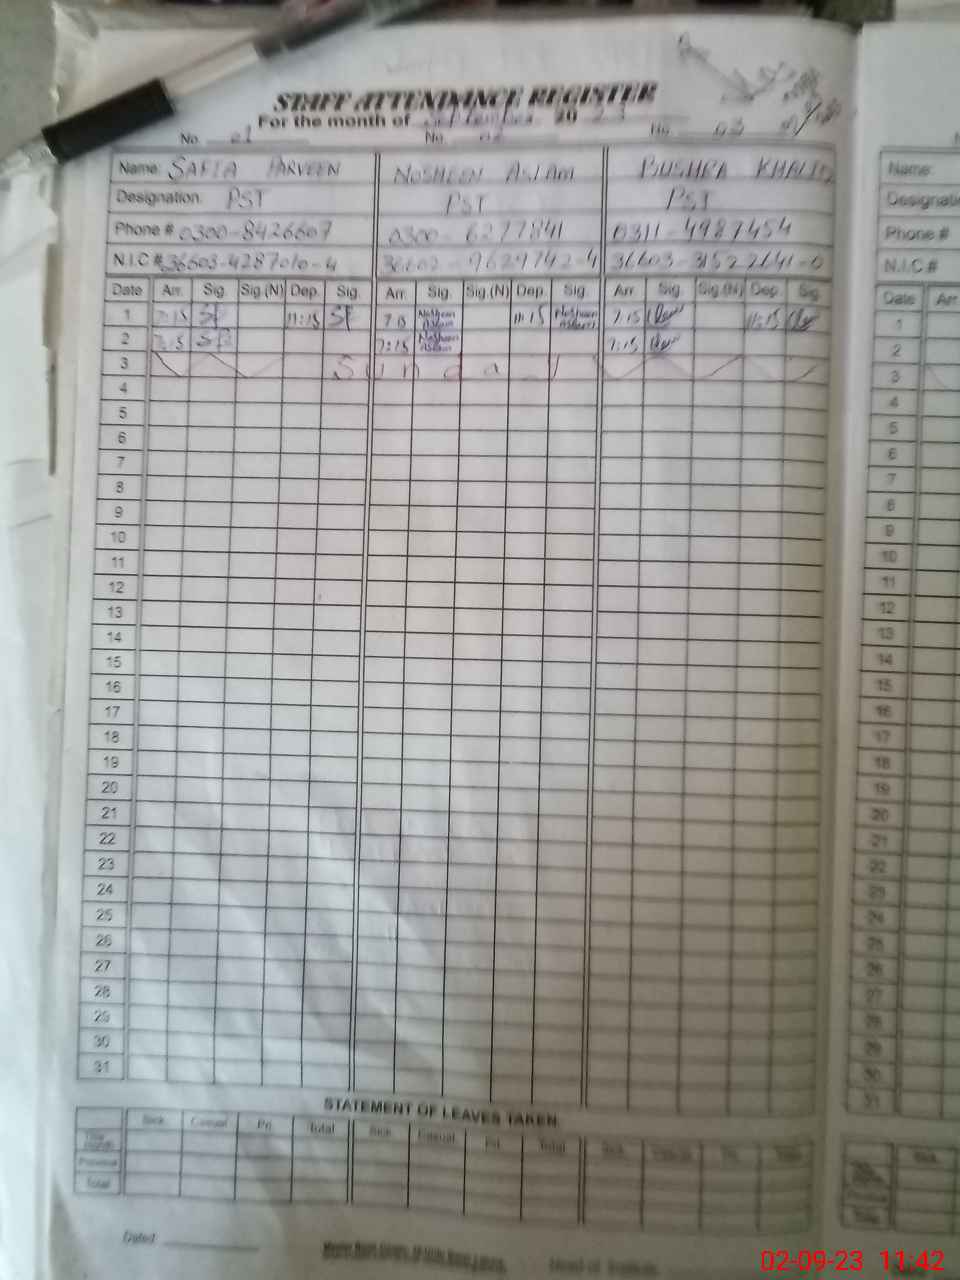 STAFF ATTENDANCE REGISTER
For the month of September 2023
No. 01 No. 02 No. 03
Name: SAFIA PARVEEN NOSHEEN ASLAM BUSHRA KHALID Name:
Designation. PST PST PST
Phone # 0300-8426607 0300-6277841 0311-4987454 Phone #
N.I.C # 36603-4287010-4 36602-9629742-4 36603-31522641-0 N.I.C #
Date Arr. Sig. Sig.(N) Dep. Sig. Arr. Sig. Sig.(N) Dep. Sig. Arr. Sig. Sig.(N) Dep. Sig. Date Arr.
1 7:15 SP 11:15 SP 7:15 Nosheen Aslam 11:15 Nosheen Aslam 7:15 11:15 1
2 7:15 SP 7:15 Nosheen Aslam 7:15 2
3 Sunday 3
4 4
5 5
6 6
7 7
8 8
9 9
10 10
11 11
12 12
13 13
14 14
15 15
16 16
17 17
18 18
19 19
20 20
21 21
22 22
23 23
24 24
25 25
26 26
27 27
28 28
29 29
30 30
31 31
STATEMENT OF LEAVES TAKEN.
Sick. Casual Pri. Total Sick. Casual. Pri. Total Sick.
Total
Dated
02-09-23 11:42